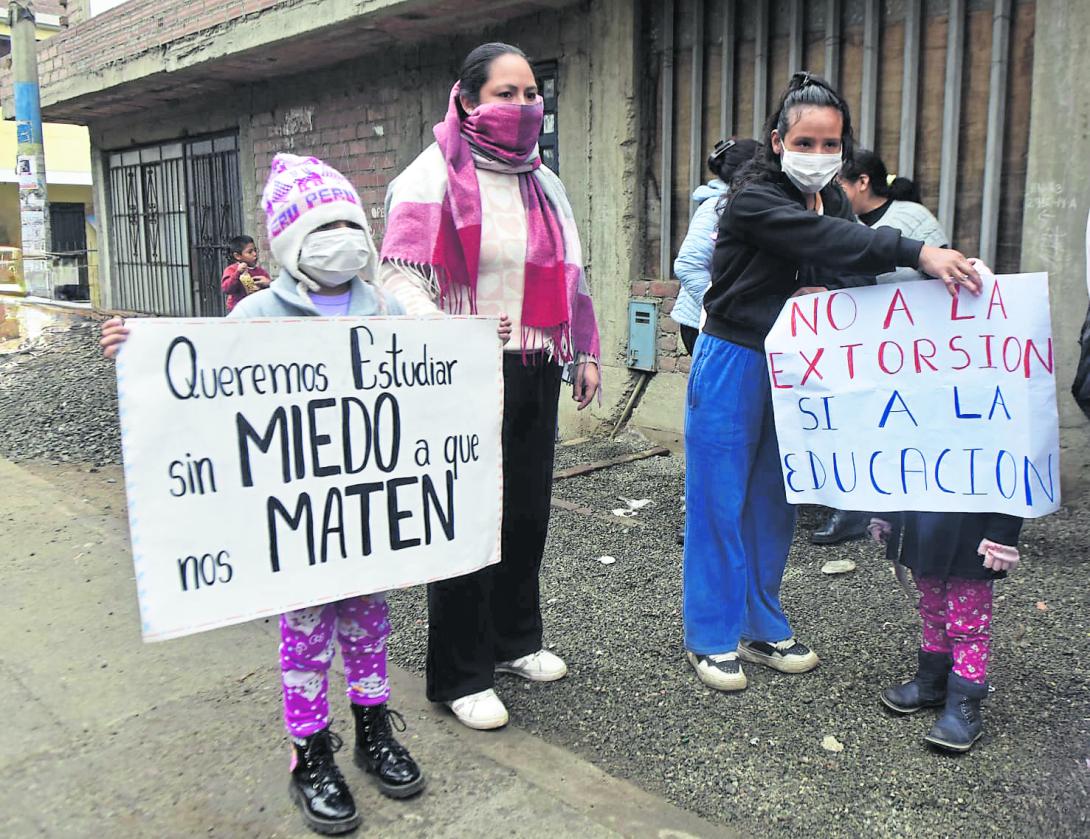 PERU PERU
Queremos Estudiar
sin MIEDO a que
nos MATEN
NO A LA
EXTORSION
SI A LA
EDUCACION